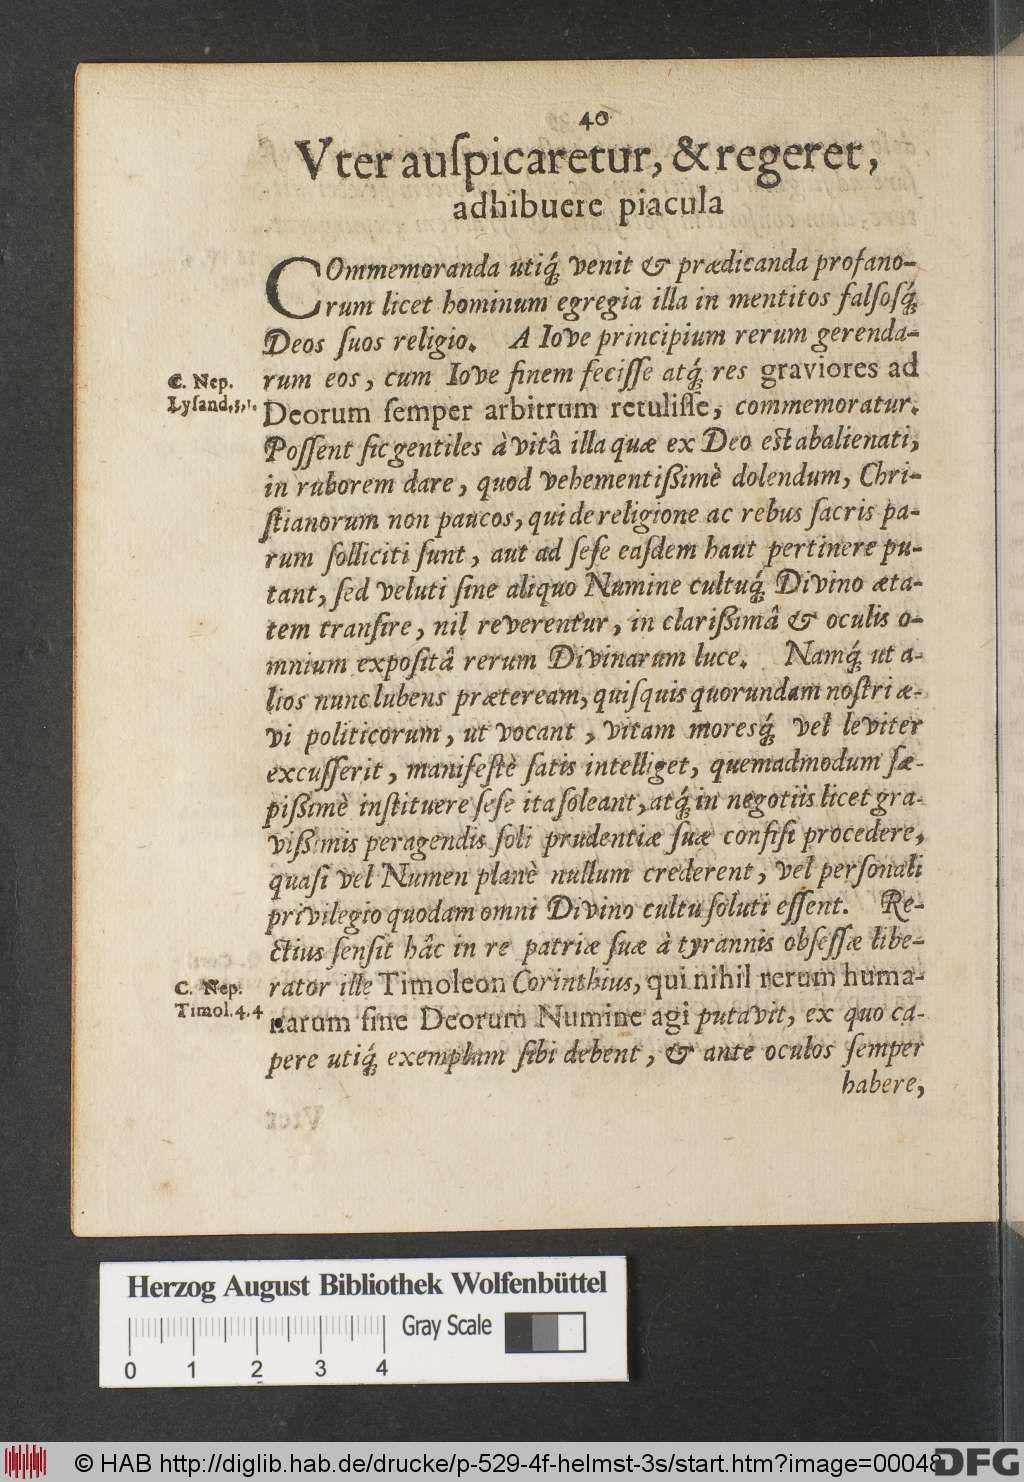 40
Vter auſpicaretur, & regeret,
adhibuere piacula
COmmemoranda utiq́; venit & prædicanda profano-
rum licet hominum egregia illa in mentitos falſoſq́;
Deos ſuos religio. A Iove principium rerum gerenda-
rum eos, cum Iove finem feciſſe atq́; res graviores ad
C. Nep.
Lyſand.3,1.
Deorum ſemper arbitrum retuliſſe, commemoratur.
Poſſent ſic gentiles à vitâ illa quæ ex Deo est abalienati,
in ruborem dare, quod vehementißimè dolendum, Chri-
ſtianorum non paucos, qui de religione ac rebus ſacris pa-
rum ſolliciti ſunt, aut ad ſeſe eaſdem haut pertinere pu-
tant, ſed veluti ſine aliquo Numine cultuq́; Divino æta-
tem tranſire, nil reverentur, in clarißimâ & oculis o-
mnium expoſitâ rerum Divinarum luce. Namq́; ut a-
lios nunc lubens præteream, quiſquis quorundam noſtri æ-
vi politicorum, ut vocant, vitam moresq́; vel leviter
excuſſerit, manifeſtè ſatis intelliget, quemadmodum ſæ-
pißimè inſtituere ſeſe ita ſoleant, atq́; in negotiis licet gra-
vißimis peragendis ſoli prudentiæ ſuæ confiſi procedere,
quaſi vel Numen planè nullum crederent, vel perſonali
privilegio quodam omni Divino cultu ſoluti eſſent. Re-
ctius ſenſit hâc in re patriæ ſuæ à tyrannis obſeſſæ libe-
rator ille Timoleon Corinthius, qui nihil rerum huma-
C. Nep.
Timol.4,4
narum ſine Deorum Numine agi putavit, ex quo ca-
pere utiq́; exemplum ſibi debent, & ante oculos ſemper
habere,
Herzog August Bibliothek Wolfenbüttel
Gray Scale
0 1 2 3 4
© HAB http://diglib.hab.de/drucke/p-529-4f-helmst-3s/start.htm?image=00048
DFG